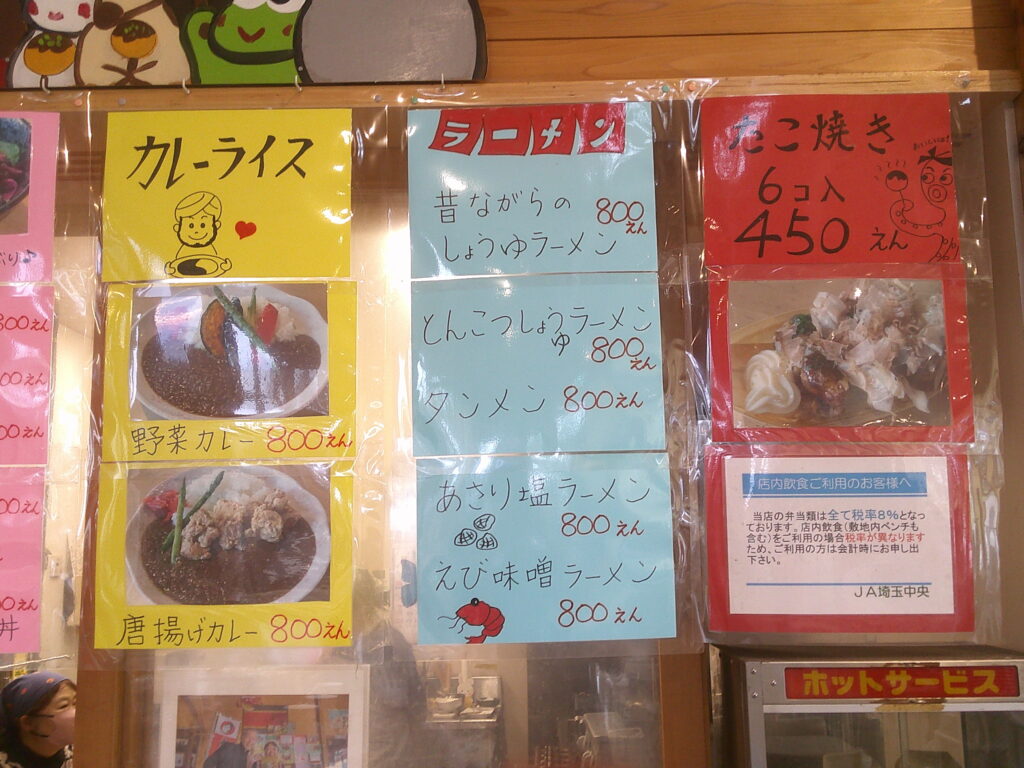 カレーライス
野菜カレー 800えん
唐揚げカレー 800えん
ラーメン
昔ながらの
しょうゆラーメン
800えん
とんこつしょうゆラーメン
800えん
タンメン 800えん
あさり塩ラーメン
800えん
えび味噌ラーメン
800えん
たこ焼き
6コ入
450えん
店内飲食ご利用のお客様へ
当店の弁当類は全て税率8%となっ
ております。店内飲食(敷地内ベンチも
含む)をご利用の場合税率が異なります
ため、ご利用の方は会計時にお申し出
下さい。
JA埼玉中央
ホットサービス
800えん
00えん
00えん
00えん
0えん
丼